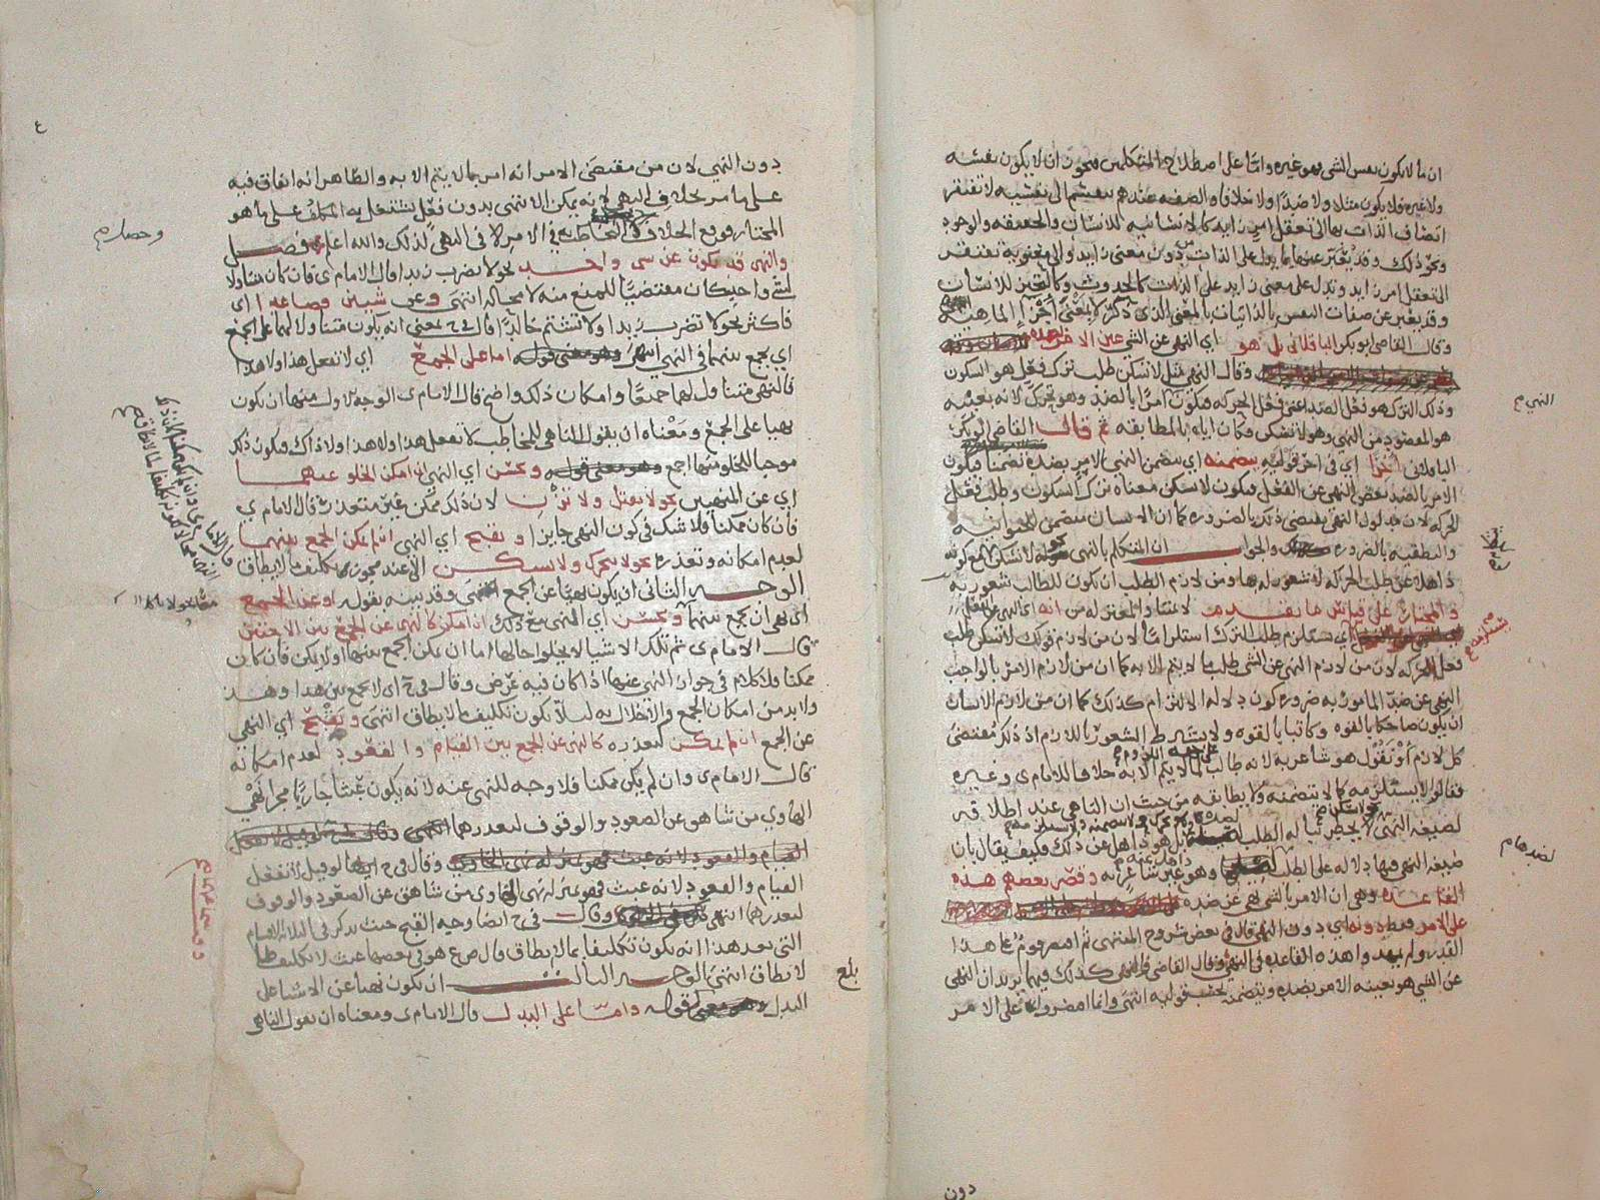 ان ما لا يكون بنفس الشي فهو غيره واما على اصطلاح المتكلمين فيجوز ان لا يكون نفسه
ولا غيره فلا يكون مثلا ولا ضدا ولا خلافا والصفه عندهم تنقسم الى نفسيه لا تفتقر
اتصاف الذات بها الى تعقل امر زايد كالانسانيه للانسان والحقيقه والوجود
ونحو ذلك وقد يعبر عنها بما يدل على الذات دون معنى زايد والى معنوية تفتقر
الى تعقل امر زايد وتدل على معنى زايد على الذات كالحدوث وكالتحيز للانسان
وقد يعبر عن صفات النفس بالذاتيات بالمعنى الذي ذكر لا بمعنى اجزا الماهيه
وقال القاضي ابو بكر الباقلاني بل هو اي النهي عن الشي عين الامر بضده
وقال النهي مثل لا تسكن طلب ترك فعل هو السكون
وذلك الترك هو فعل الضد اعني فعل الحركه فيكون امرا بالضد وهو تحرك لانه بعينه
هو المقصود من النهي وهو لا تسكن وكان اياه بالمطابقه ثم قال القاضي ابو بكر
الباقلاني اخرا اي في اخر قوليه يتضمنه اي يتضمن النهي الامر بضده تضمنا فيكون
الامر بالضد بعض النهي عن الفعل فيكون لا تسكن معناه ترك السكون وطلب فعل
الحركه لان مدلول النهي يقتضي ذلك بالضروره كما ان الانسان متضمن للحيوانيه
والنطقيه بالضروره والجواب ان المتكلم بالنهي كقوله لا تسكن مع كونه
ذاهلا عن طلب الحركه لا شعور له بها ومن لازم الطلب ان يكون للطالب شعور به
والمختار على قياس ما تقدم لائمتنا والمعتزله من انه اي النهي عن الفعل
اي يستلزم طلب الترك استلزاما لان من لازم قولك لا تسكن طلب
فعل الحركه لان من لازم النهي عن الشي طلب ما لا يتم الا به كما ان من لازم الامر بالواجب
النهي عن ضد المامور به ضروره كون دلاله الالتزام كذلك كما ان من لازم الانسان
ان يكون ضاحكا بالقوه وكاتبا بالقوه ولا يشترط الشعور باللازم اذ ذلك مقتضى
كل لازم او نقول هو شاعر به لانه طالب لما لا يتم الا به خلافا للامدي وغيره
على جهه اللزوم
فقالوا لا يستلزمه كما لا يتضمنه ولا يطابقه من حيث ان الناهي عند اطلاقه
لصيغه النهي لا يخطر بباله الطلب بل هو ذاهل عن ذلك فكيف يقال بان
صيغه النهي فيها دلاله على الطلب وهو غير شاعر به وقصر بعضهم هذه
القاعده وهي ان الامر بالشي نهي عن ضده
على الامر فقط دونه اي دون النهي قال في بعض شروح المنتهى ثم اقتصر قوم على هذا
القدر ولم يهد واهذه القاعده في النهي وقال القاضي والنهي كذلك فيهما يريد ان النهي
عن الشي هو بعينه الامر بضده ويتضمنه بحسب قوليه انتهى وانما اقتصروا على الامر
دون
النهي
لضدها
دون النهي لان من مقتضى الامر انه امر بما لا يتم الا به والظاهر انه اتفاق فيه
على ما مر بخلاف النهي لانه يمكن الانتهى بدون فعل يشتغل به المكلف على ما هو
المختار فوقع الخلاف في الامر لا في النهي لذلك والله اعلم فصل
والنهي قد يكون عن شي واحد نحو لا تضرب زيدا قال الامدي فان كان متناولا
لشي واحد كان مقتضيا للمنع منه لا محاله انتهى وعن شيين فصاعدا اي
فاكثر نحو لا تضرب زيدا ولا تشتم خالدا قال في ح بمعنى انه يكون متناولا لهما على الجمع
اي يجمع بينهما في النهي انتهى اما على الجمع اي لا تفعل هذا ولا هذا
فالنهي متناول لهما جميعا وامكان ذلك واضح قال الامدي الوجه الاول منها ان يكون
نهيا على الجمع ومعناه ان يقول الناهي للمخاطب لا تفعل هذا ولا هذا ولا ذاك فيكون ذلك
موجبا للخلو منها اجمع ويحسن اي النهي ان امكن الخلو عنهما
اي عن المنهيين نحو لا تقتل ولا تزن لان ذلك ممكن غير متعذر قال الامدي
فان كان ممكنا فلا شك في كون النهي جايزا ويقبح اي النهي ان لم يمكن الجمع بينهما
لعدم امكانه وتعذره نحو لا تتحرك ولا تسكن الا عند مجوزي تكليف ما لا يطاق
الوجه الثاني ان يكون نهيا عن الجمع وقد بينه بقوله او عن الجمع
اي نهى ان يجمع بينهما ويحسن اي النهي مع ذلك ان امكن كالنهي عن الجمع بين الاختين
قال الامدي ثم تلك الاشيا لا يخلو حالها اما ان يمكن الجمع بينها اولا يمكن فان كان
ممكنا فلا كلام في جواز النهي عنها اذا كان فيه غرض وقال في ح اي لا تجمع بين هذا وهذا
ولا بد من امكان الجمع والاخلال به لئلا يكون تكليف ما لا يطاق انتهى ويقبح اي النهي
عن الجمع ان لم يمكن لتعذره كالنهي عن الجمع بين القيام والقعود لعدم امكانه
قال الامدي وان لم يكن ممكنا فلا وجه للنهي عنه لانه يكون عبثا جاريا مجرا نهي
الهاوي من شاهق عن الصعود والوقوف لتعذرهما
القيام والقعود لانه عبث فهو بمنزله نهي الهاوي وقال في ح ايضا لو قيل لا تفعل
القيام والقعود لانه عبث فهو بمنزله نهي الهاوي من شاهق عن الصعود والوقوف
لتعذرهما انتهى وقال في ح ايضا وجه القبح حيث يذكر في الثلاثه الاقسام
التي بعد هذا انه يكون تكليفا بما لا يطاق قال ص ع هو في بعضها عبث لا تكليف بما
لا يطاق انتهى الوجه الثالث ان يكون نهيا عن الاشيا على
البدل قوله واما على البدل قال الامدي ومعناه ان يقول الناهي
بلغ